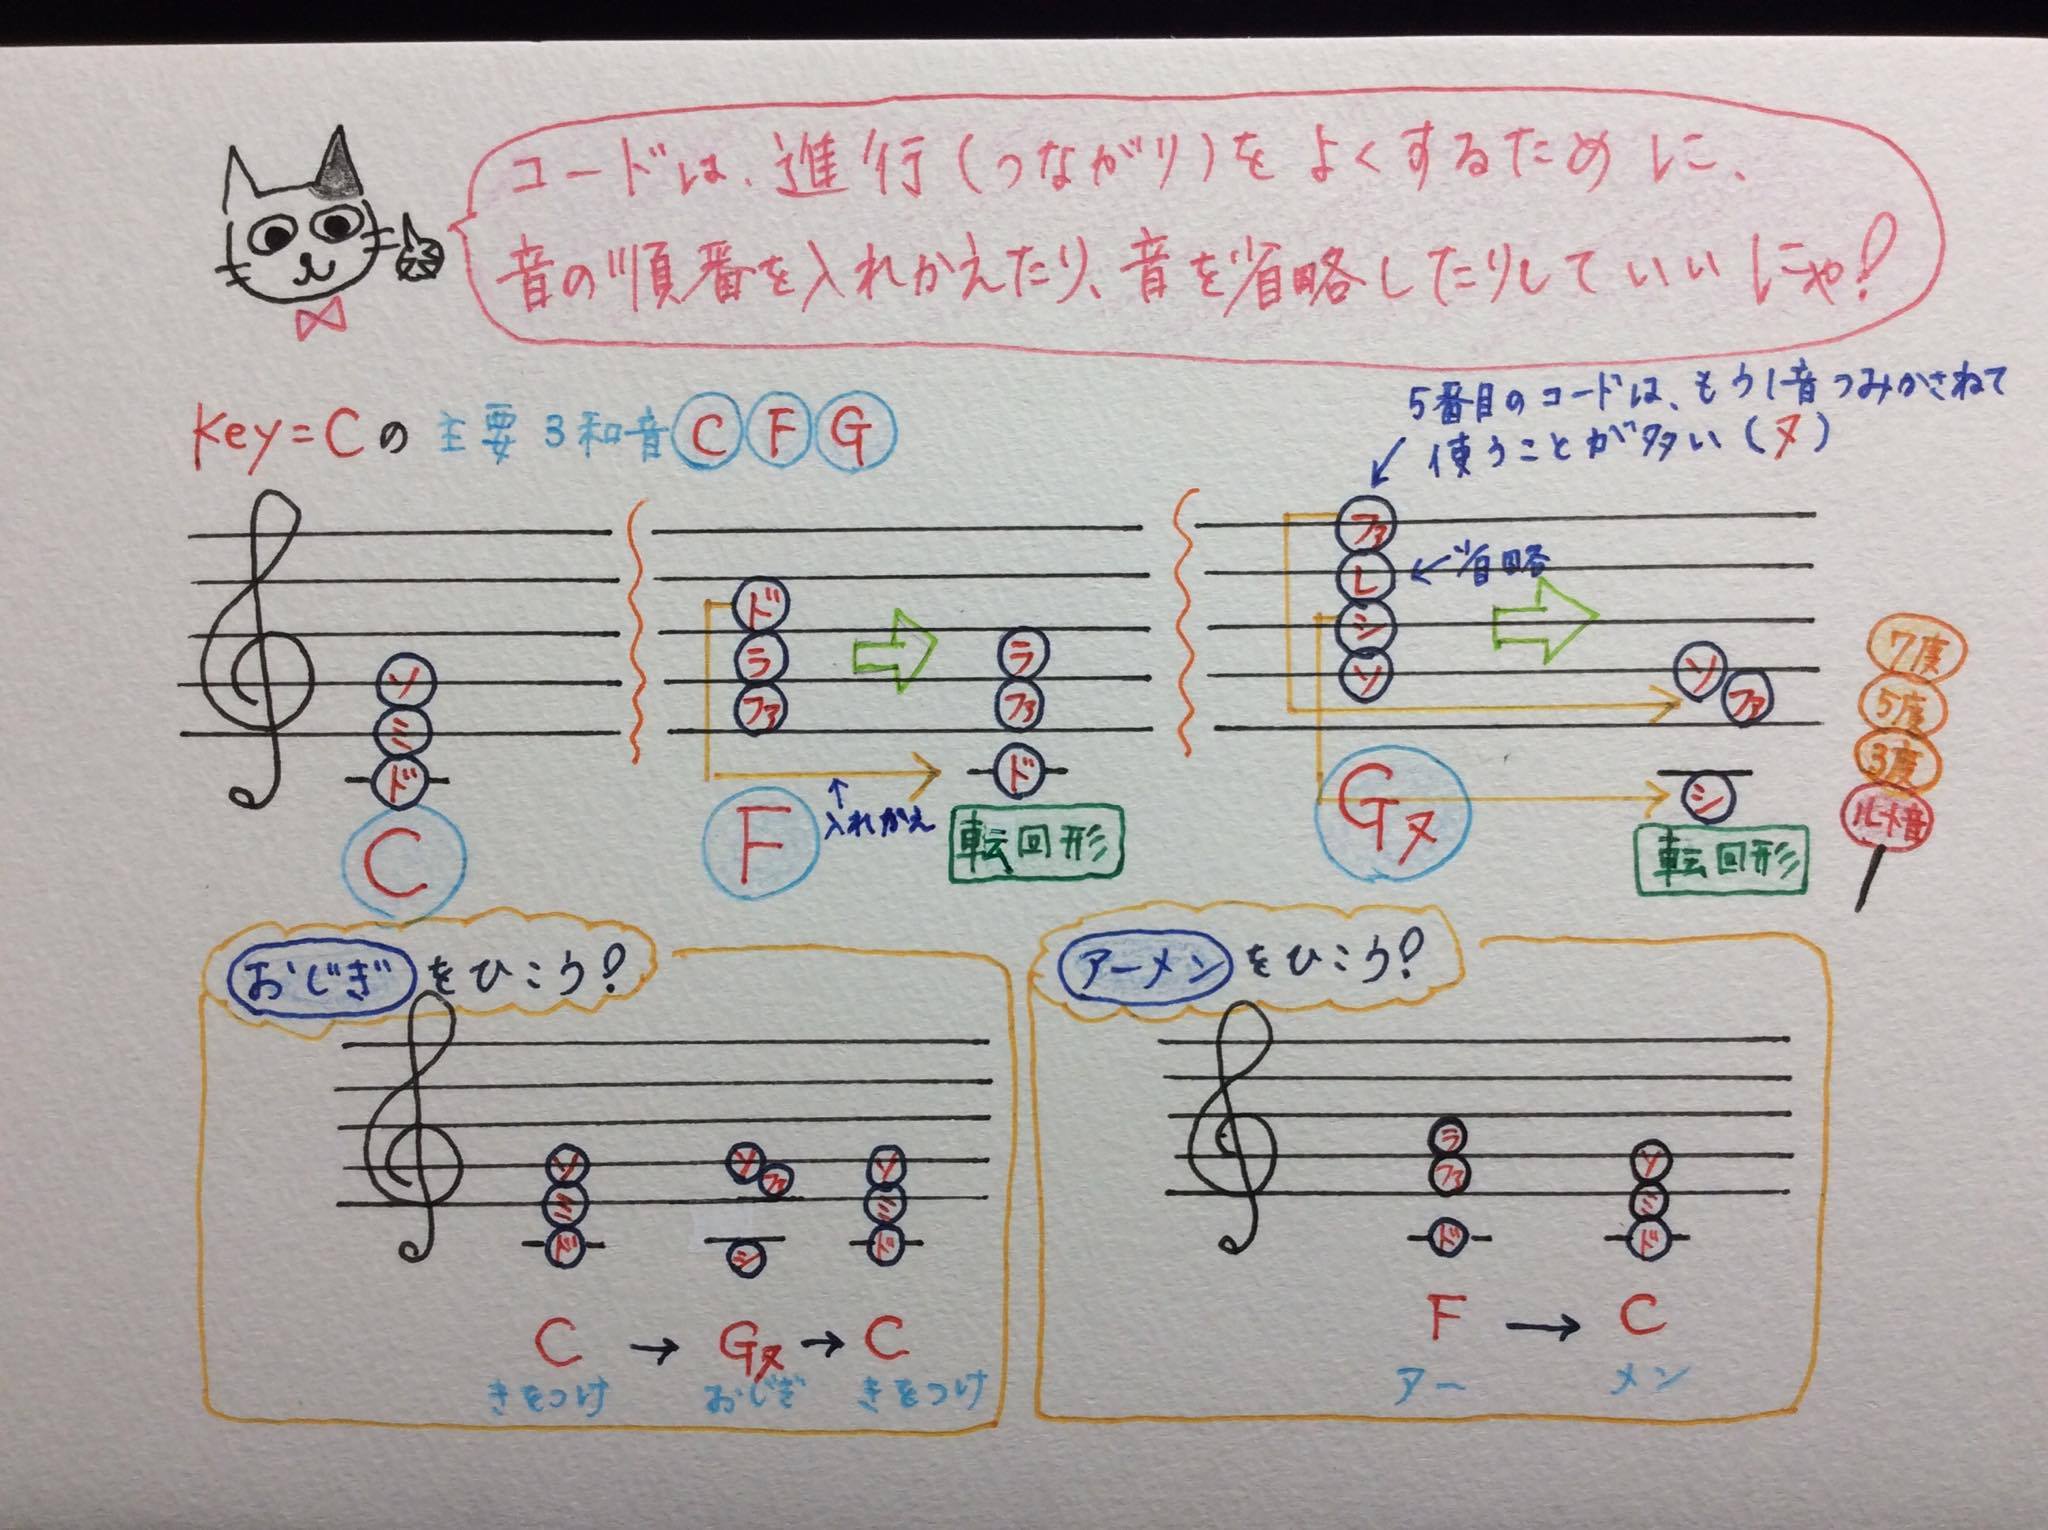 コードは、進行(つながり)をよくするために、
音の順番を入れかえたり、音を省略したりしていいにゃ!
Key=Cの主要3和音 C F G
5番目のコードは、もう1音つみかさねて
使うことが多い(7)
ソ
ミ
ド
C
ド
ラ
ファ
F
入れかえ
ラ
ファ
ド
転回形
ファ
レ
省略
シ
ソ
G7
ソ
ファ
シ
転回形
7度
5度
3度
ルート音
おじぎをひこう!
ソ ソ ソ
ミ ファ ミ
ド シ ド
C → G7 → C
きをつけ おじぎ きをつけ
アーメンをひこう!
ラ ソ
ファ ミ
ド ド
F → C
アー メン